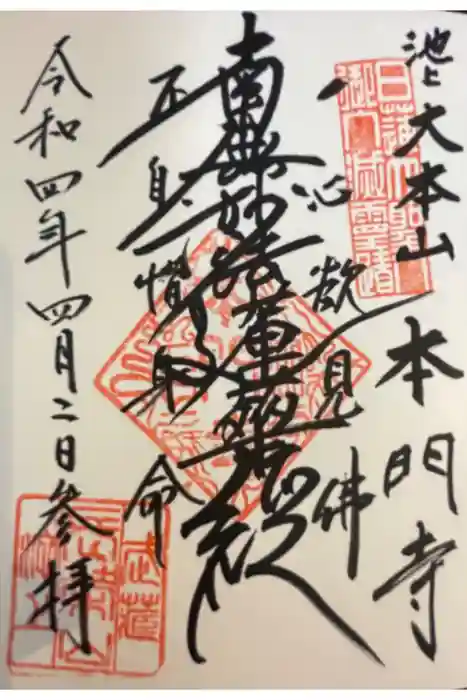 池上 大本山 本門寺
日蓮大聖人
御入滅靈蹟
一心欲見佛
南無妙法蓮華經
不自惜身命
令和四年四月二日参拝